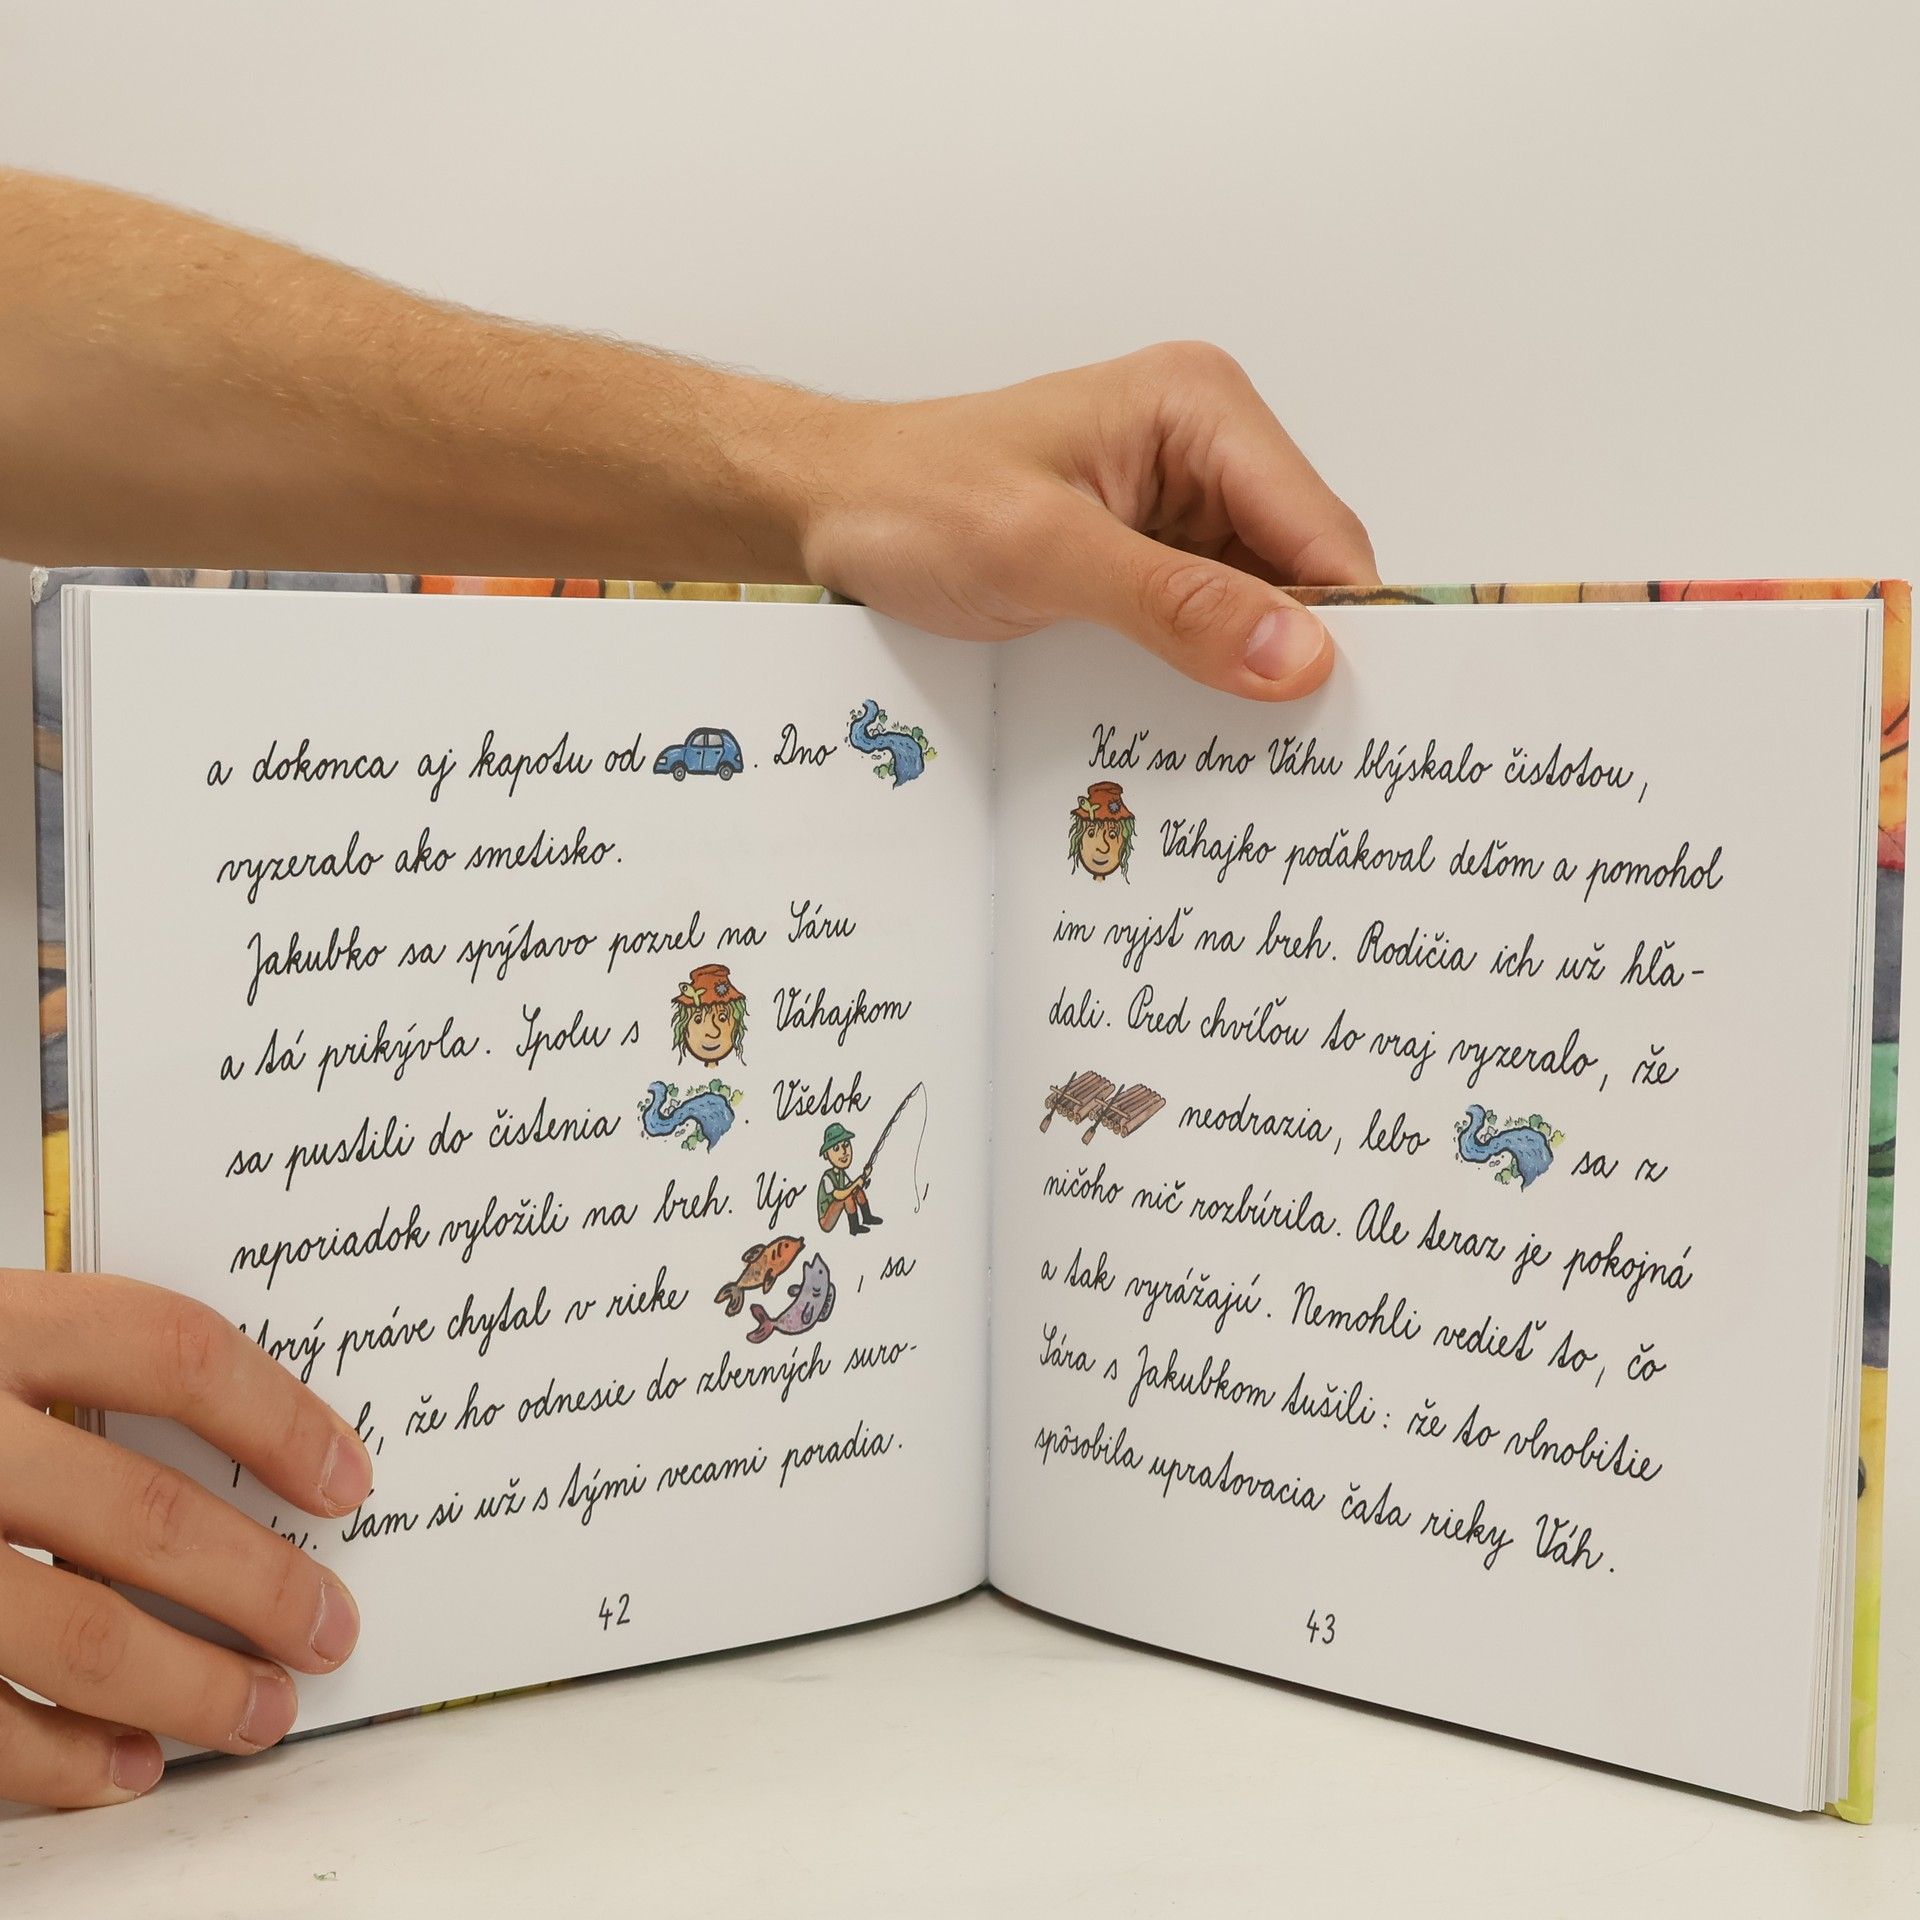 a dokonca aj kapotu od . Dno
vyzeralo ako smetisko.
Jakubko sa spýtavo pozrel na Sáru
a tá prikývla. Spolu s Váhajkom
sa pustili do čistenia . Všetok
neporiadok vyložili na breh. Ujo ,
práve chytal v rieke , sa
že ho odnesie do zberných suro-
Tam si už s tými vecami poradia.
42
Keď sa dno Váhu blýskalo čistotou,
Váhajko poďakoval deťom a pomohol
im vyjsť na breh. Rodičia ich už hľa-
dali. Pred chvíľou to vraj vyzeralo, že
neodrazia, lebo sa z
ničoho nič rozbúrila. Ale teraz je pokojná
a tak vyrážajú. Nemohli vedieť to, čo
Sára s Jakubkom tušili: že to vlnobitie
spôsobila upratovacia čata rieky Váh.
43